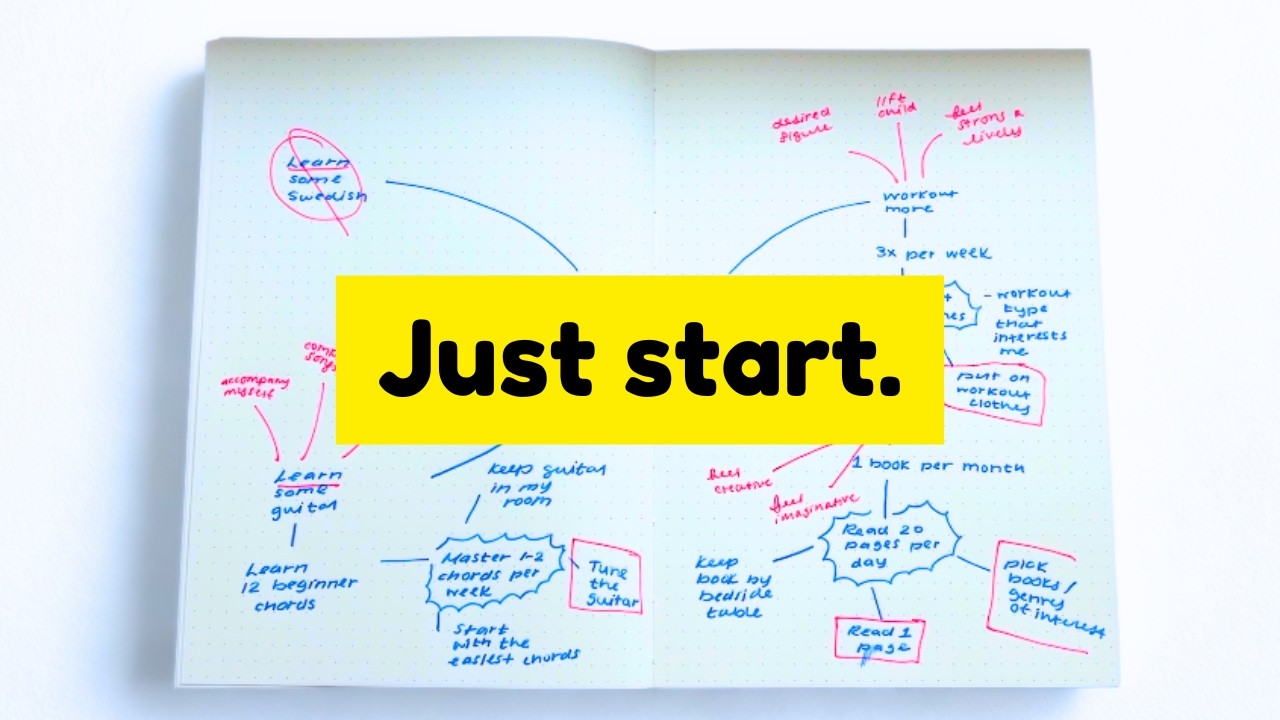 Learn
some
Swedish
accompany
myself
songs
Learn
some
guitar
Learn
12 beginner
chords
keep guitar
in my
room
Master 1-2
chords per
week
Tune
the
guitar
Start
with the
easiest chords
Just start.
desired
figure
lift
child
feel
strong &
lively
workout
more
3x per week
- workout
type
that
interests
me
put on
workout
clothes
1 book per month
feel
creative
feel
imaginative
Read 20
pages per
day
keep
book by
bedside
table
pick
books/
genres
of interest
Read 1
page